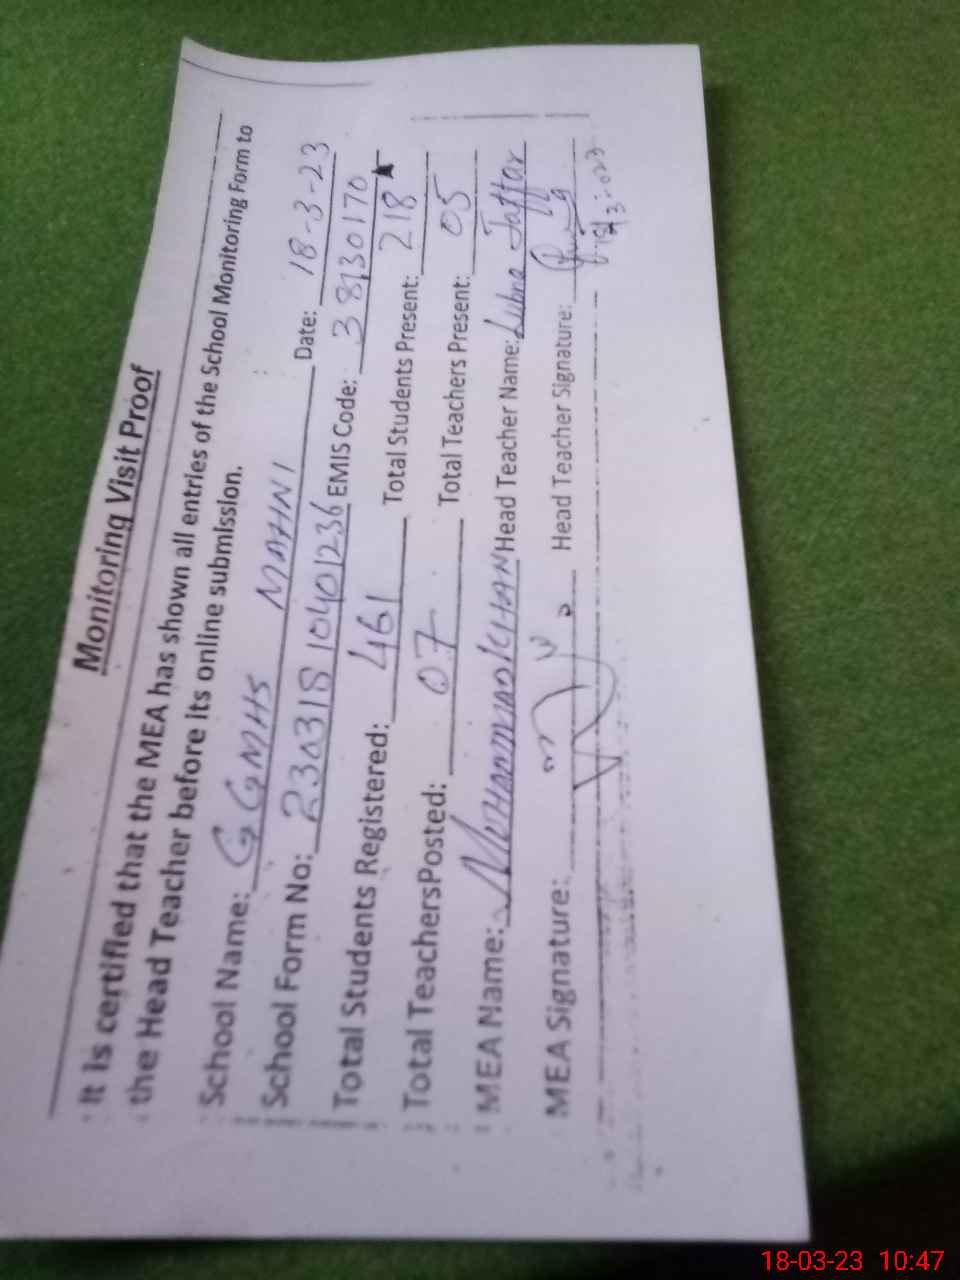 Monitoring Visit Proof
It is certified that the MEA has shown all entries of the School Monitoring Form to
the Head Teacher before its online submission.
School Name: GGMHS MAHNI Date: 18-3-23
School Form No: 230318 10401236 EMIS Code: 38130170
Total Students Registered: 461 Total Students Present: 218
Total TeachersPosted: 07 Total Teachers Present: 05
MEA Name: MUHAMMAD KHAN Head Teacher Name: Lubna Jaffar
MEA Signature: Head Teacher Signature:
18-03-23 10:47